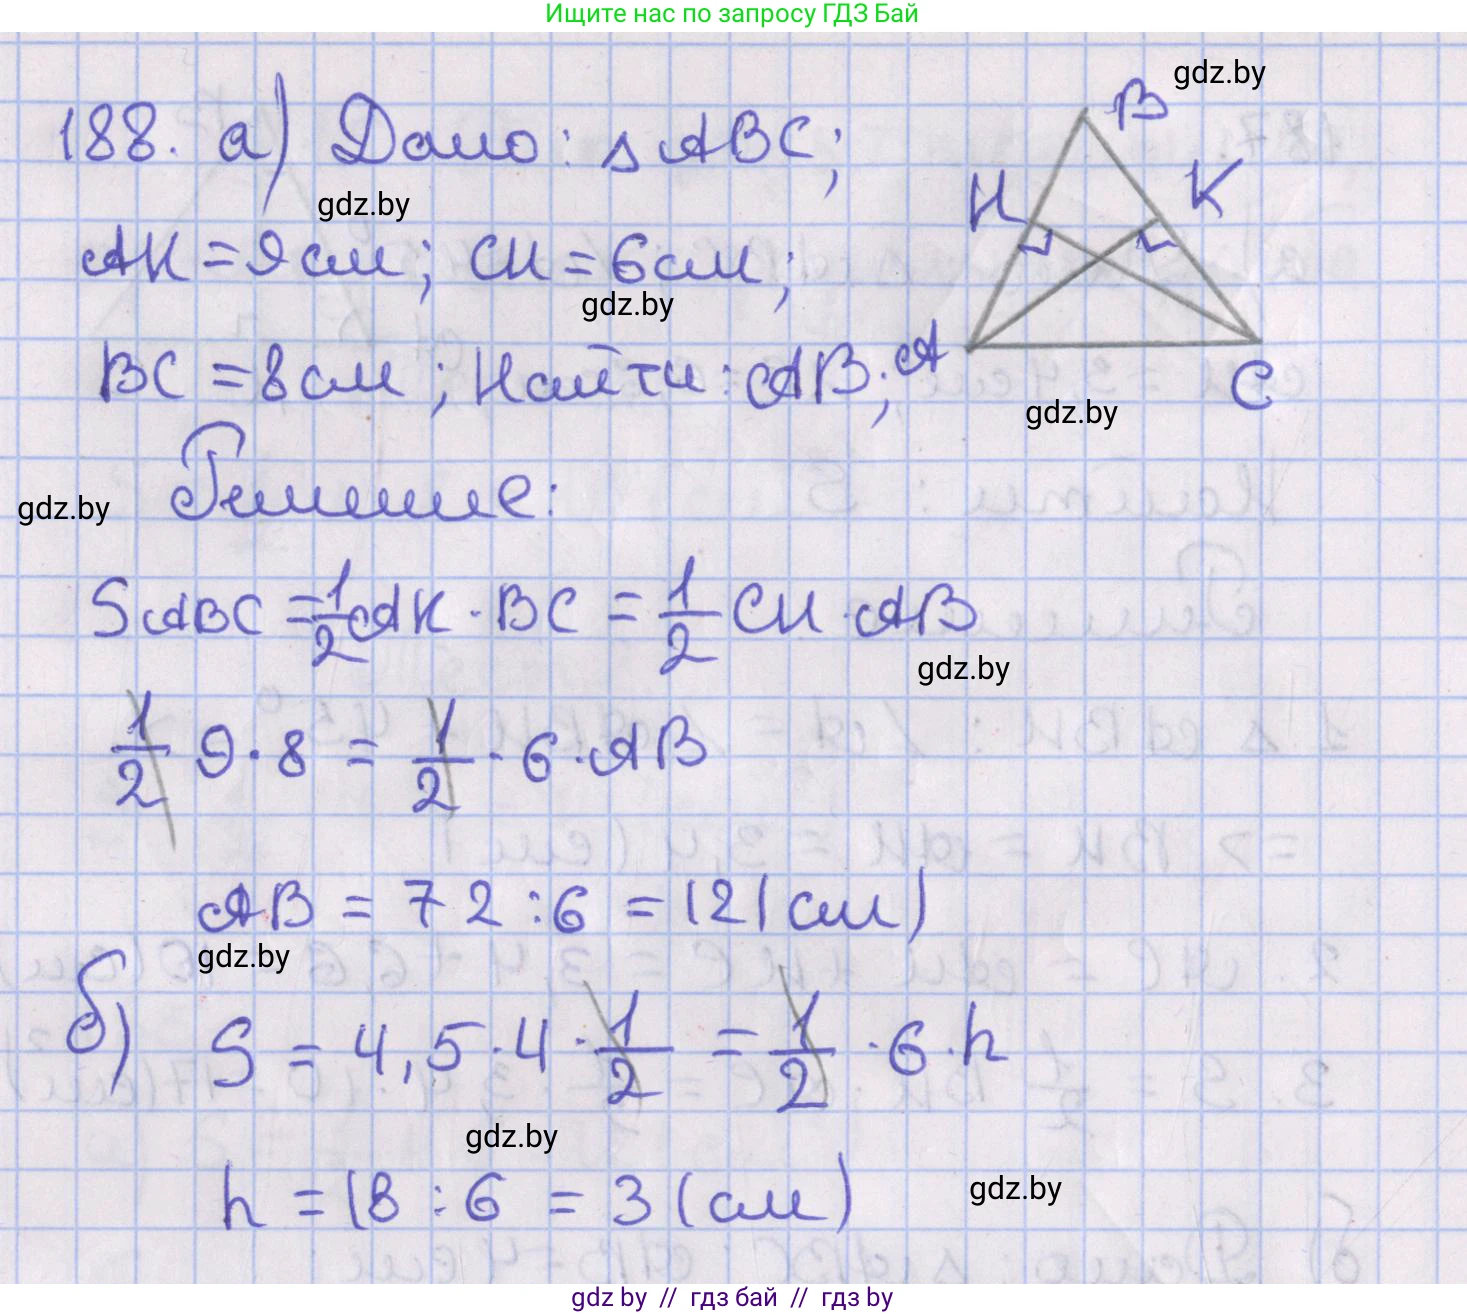 Ищите нас по запросу ГДЗ Бай
gdz.by
188. а) Дано: △ABC;
B
gdz.by
H
K
AK = 9 см; CH = 6 см;
gdz.by
BC = 8 см; Найти: AB;
A
C
gdz.by
Решение:
gdz.by
S ABC = 1/2 AK · BC = 1/2 CH · AB
gdz.by
1/2 9 · 8 = 1/2 · 6 · AB
AB = 72 : 6 = 12 (см)
gdz.by
б) S = 4,5 · 4 · 1/2 = 1/2 · 6 · h
gdz.by
h = 18 : 6 = 3 (см)
gdz.by
gdz by // гдз бай // гдз by